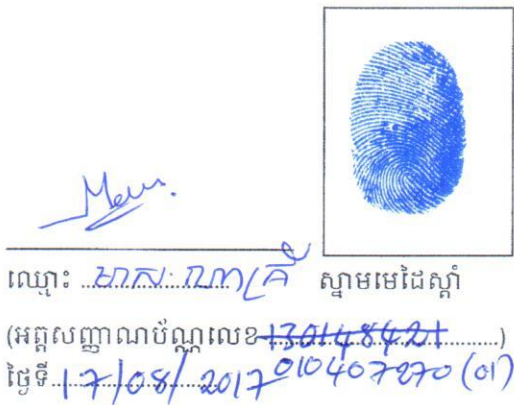 ឈ្មោះ មាស ណាគ្រី ស្នាមមេដៃស្តាំ
(អត្តសញ្ញាណប័ណ្ណលេខ 130148421)
ថ្ងៃទី 17/08/2017 010407270 (01)